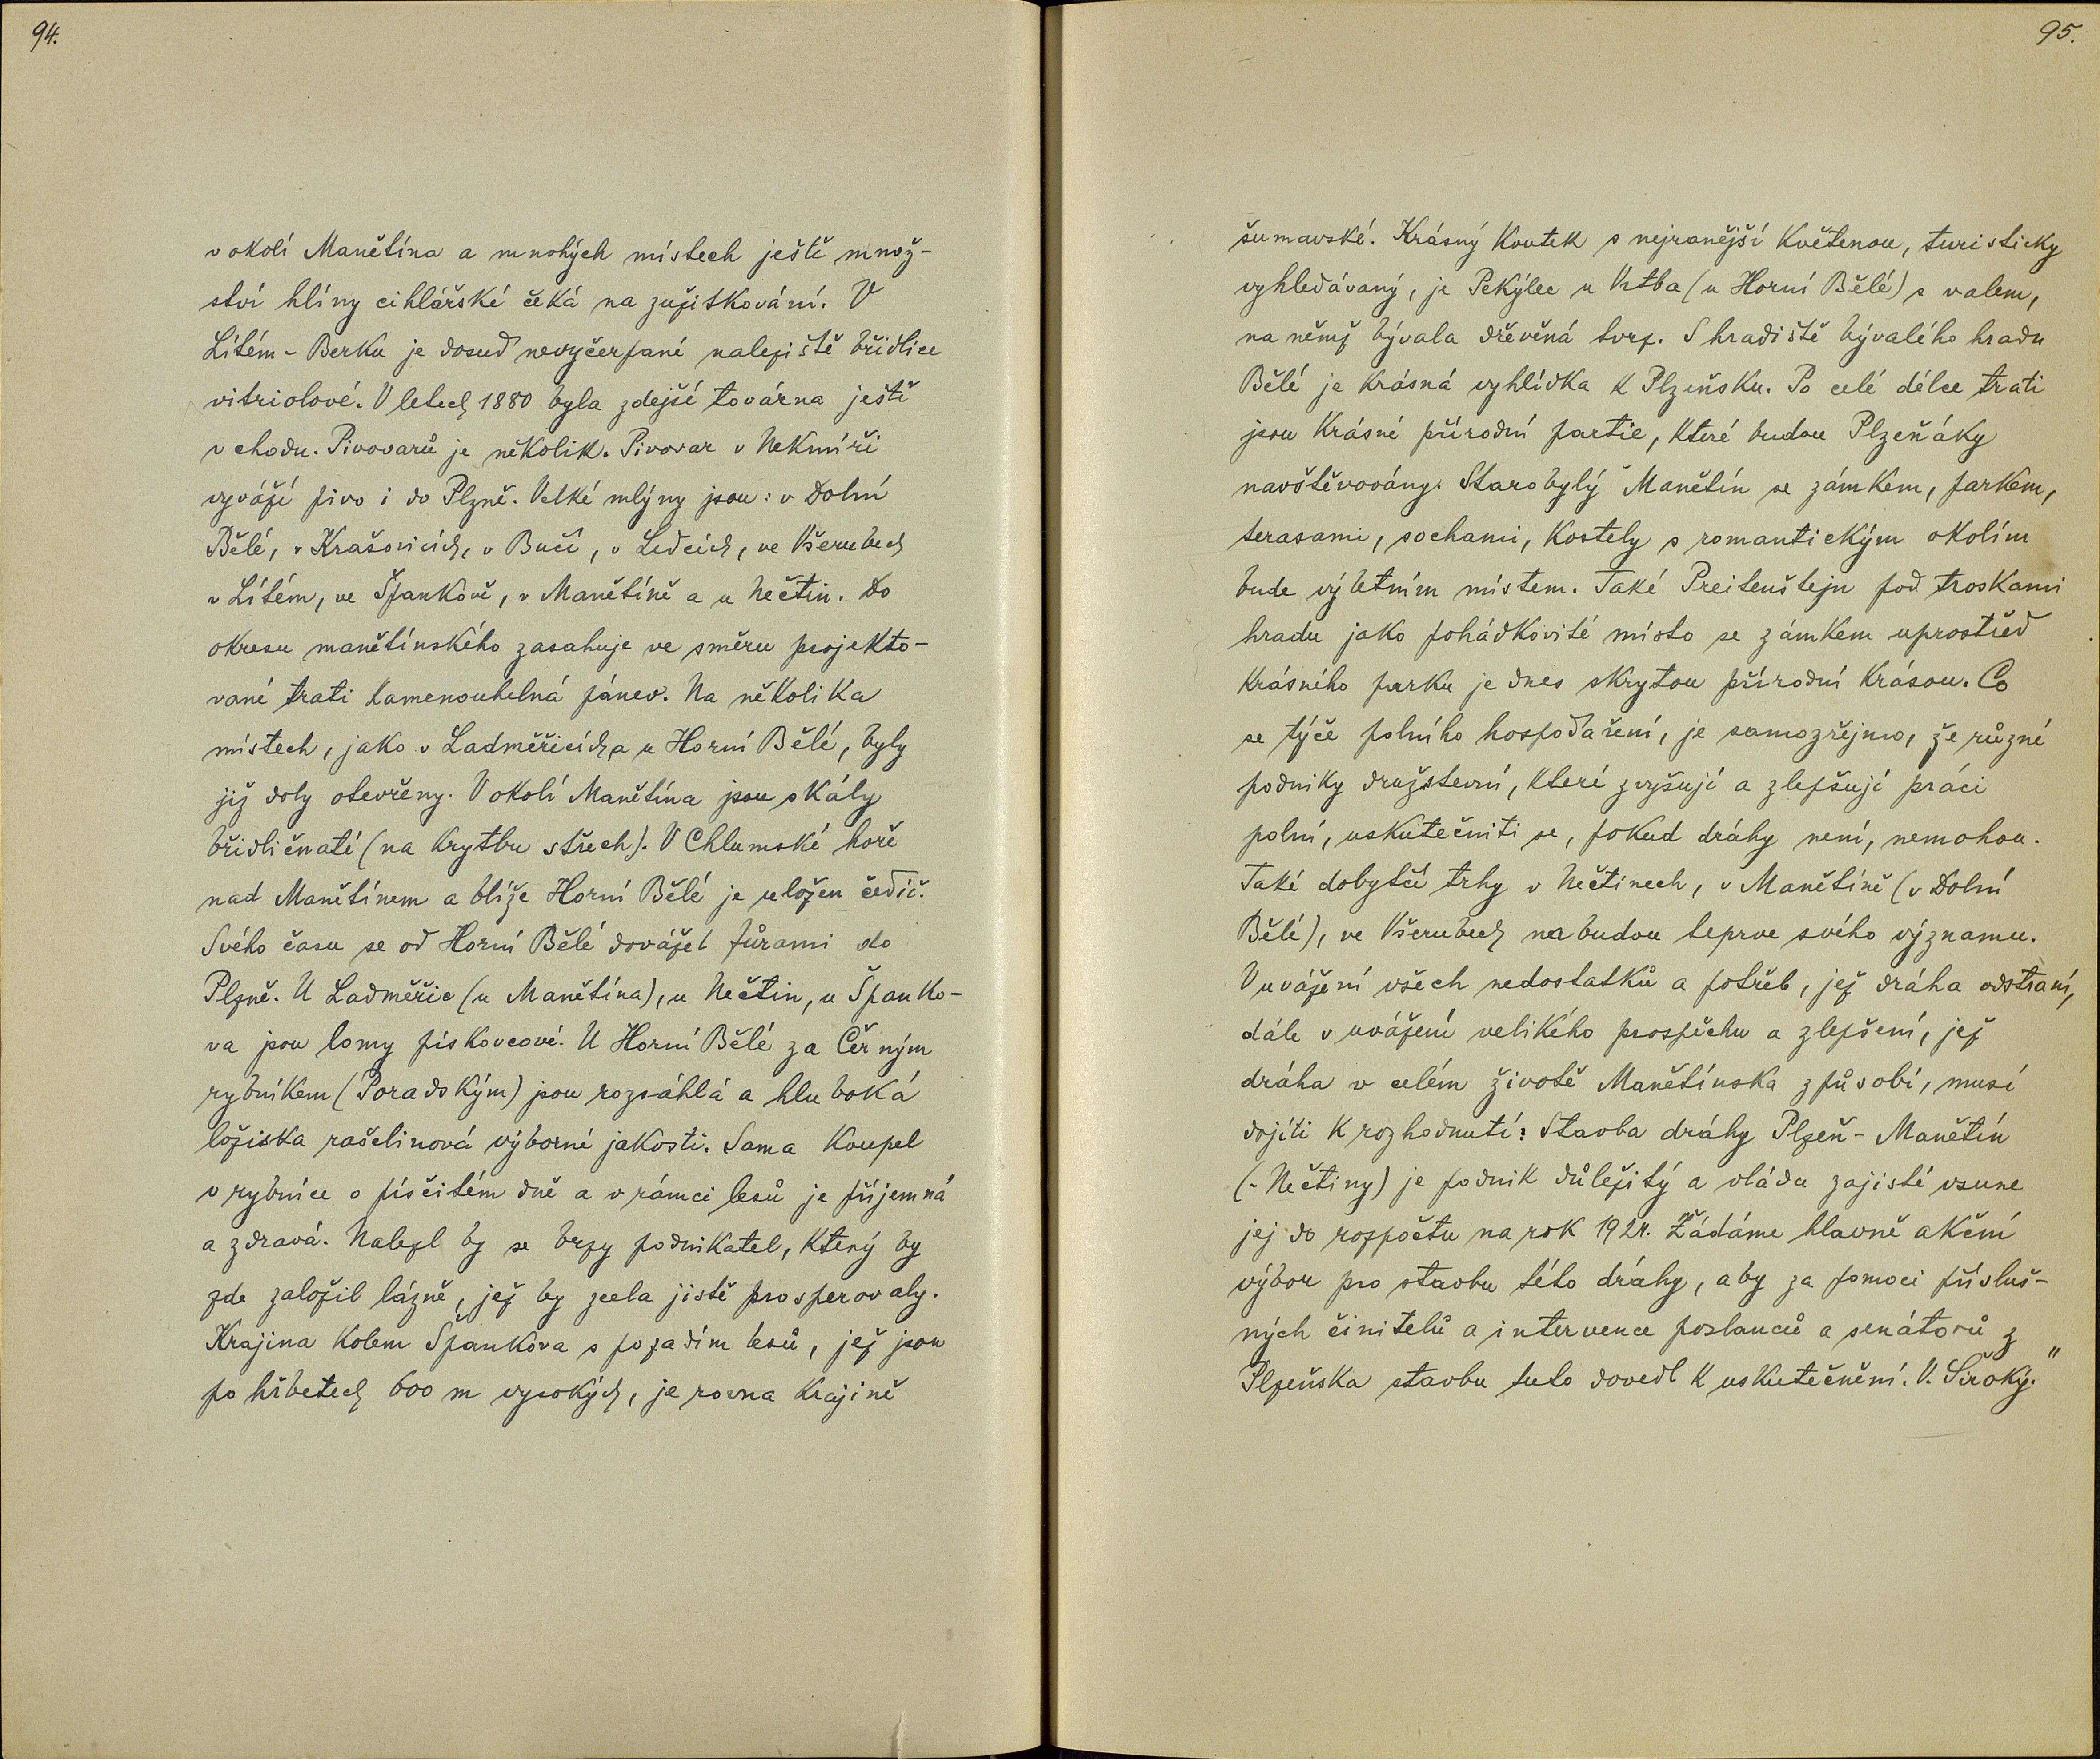 94.
v okolí Manětína a mnohých místech ještě množ-
ství hlíny cihlářské čeká na zužitkování. V
Lítém-Berku je dosud nevyčerpané naleziště břidlice
vitriolové. V letech 1880 byla zdejší továrna ještě
v chodu. Pivovarů je několik. Pivovar v Nekmíři
vyváží pivo i do Plzně. Velké mlýny jsou: v Dolní
Bělé, v Krašovicích, v Bučí, v Ledcích, ve Všerubech
v Lítém, ve Špankově, v Manětíně a u Nečtin. Do
okresu manětínského zasahuje ve směru projekto-
vané trati kamenouhelná pánev. Na několika
místech, jako v Ladměřicích a u Horní Bělé, byly
již doly otevřeny. V okolí Manětína jsou skály
břidličnaté (na krytbu střech). V Chlumské hoře
nad Manětínem a blíže Horní Bělé je uložen čedič.
Svého času se od Horní Bělé dovážel fůrami do
Plzně. U Ladměřic (u Manětína), u Nečtin, u Španko-
va jsou lomy pískovcové. U Horní Bělé za Černým
rybníkem (Poradským) jsou rozsáhlá a hluboká
ložiska rašelinová výborné jakosti. Sama koupel
v rybníce o písčitém dně a v rámci lesů je příjemná
a zdravá. Nalezl by se brzy podnikatel, který by
zde založil lázně, jež by zcela jistě prosperovaly.
Krajina kolem Špankova s pozadím lesů, jež jsou
po hřbetech 600 m vysokých, je rovna krajině
95.
šumavské. Krásný koutek s nejranější květenou, turisticky
vyhledávaný, je Pekýlec u Vrtba (u Horní Bělé) s valem,
na němž bývala dřevěná tvrz. S hradiště bývalého hradu
Bělé je krásná vyhlídka k Plzeňsku. Po celé délce trati
jsou krásné přírodní partie, které budou Plzeňáky
navštěvovány. Starobylý Manětín se zámkem, parkem,
terasami, sochami, kostely s romantickým okolím
bude výletním místem. Také Preitenštejn pod troskami
hradu jako pohádkovité místo se zámkem uprostřed
krásného parku je dnes skrytou přírodní krásou. Co
se týče polního hospodaření, je samozřejmo, že různé
podniky družstevní, které zvyšují a zlepšují práci
polní, uskutečniti se, pokud dráhy není, nemohou.
Také dobytčí trhy v Nečtinech, v Manětíně (v Dolní
Bělé), ve Všerubech nabudou teprve svého významu.
V uvážení všech nedostatků a potřeb, jež dráha odstraní,
dále v uvážení velikého prospěchu a zlepšení, jež
dráha v celém životě Manětínska způsobí, musí
dojíti k rozhodnutí: Stavba dráhy Plzeň-Manětín
(-Nečtiny) je podnik důležitý a vláda zajisté vsune
jej do rozpočtu na rok 1924. Žádáme hlavně akční
výbor pro stavbu této dráhy, aby za pomoci přísluš-
ných činitelů a intervence poslanců a senátorů z
Plzeňska stavbu tuto dovedl k uskutečnění. V. Široký."